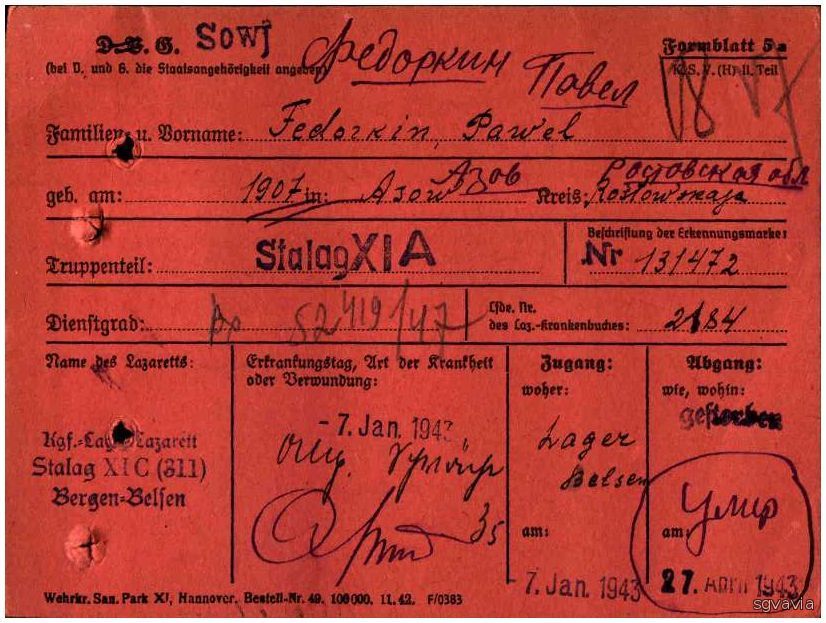 D. E. G. Sowj Федоркин Formblatt 5a
(bei D. und E. die Staatsangehörigkeit angeben) Повел K. S. V. (H) II. Teil
Familien- u. Vorname: Fedorkin, Pawel
Азов Ростовская обл
geb. am: 1907 in: Asow Kreis: Rostowskaja
Truppenteil: Stalag XI A
Beschriftung der Erkennungsmarke:
Nr 131472
Dienstgrad: 52419/47
Lfde. Nr.
des Laz.-Krankenbuches: 2184
Name des Lazaretts:
Kgf.-Lager-Lazarett
Stalag XI C (311)
Bergen-Belsen
Erkrankungstag, Art der Krankheit
oder Verwundung:
-7. Jan. 1943
35
Zugang:
woher:
Lager
Belsen
am:
-7. Jan. 1943
Abgang:
wie, wohin:
gestorben
умер
am:
27. April 1943
Wehrkr. San. Park XI, Hannover. Bestell-Nr. 49. 100000. 11. 42. F/0383
sgvavia